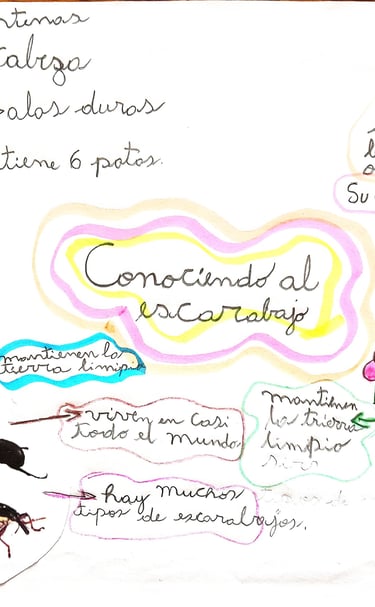 ntenas
Cabeza
alas duras
tiene 6 patas.
Su
Conociendo al
escarabajo
mantienen la
tierra limipia
viven en casi
todo el mundo
mantienen
la trierra
limipio
hay muchos
tipos de escarabajos.